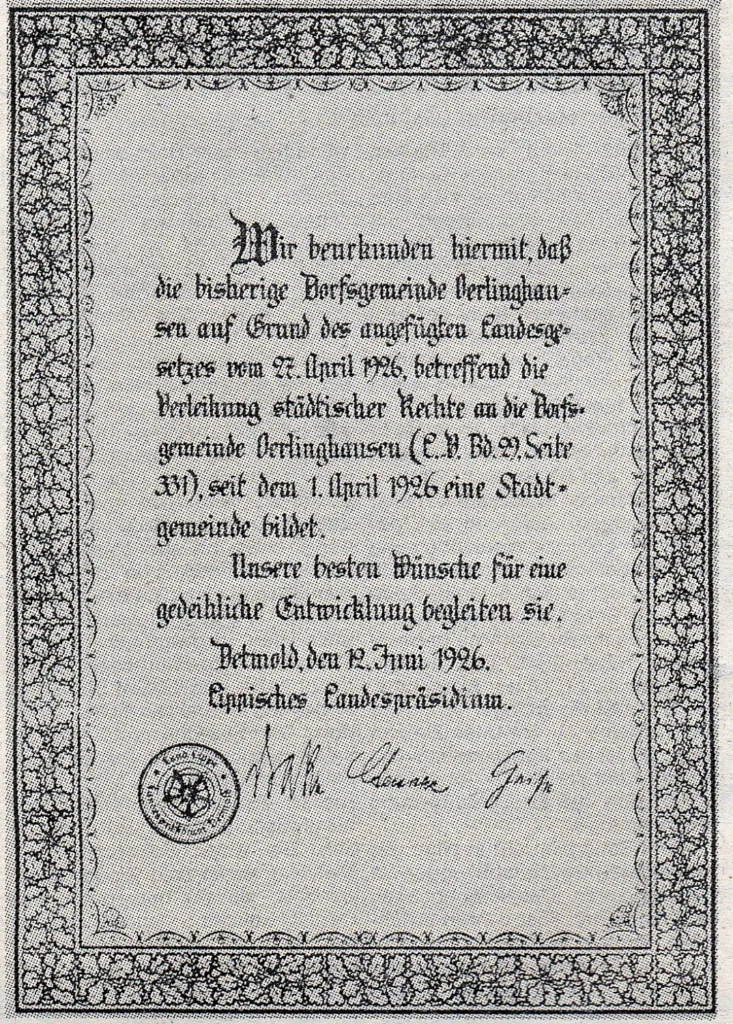 Wir beurkunden hiermit, daß
die bisherige Dorfsgemeinde Oerlinghau-
sen auf Grund des angefügten Landesge-
setzes vom 27. April 1926, betreffend die
Verleihung städtischer Rechte an die Dorfs-
gemeinde Oerlinghausen (L.V. Bd. 29, Seite
331), seit dem 1. April 1926 eine Stadt-
gemeinde bildet.
Unsere besten Wünsche für eine
gedeihliche Entwicklung begleiten sie.
Detmold, den 12. Juni 1926.
Lippisches Landespräsidium.
Land Lippe